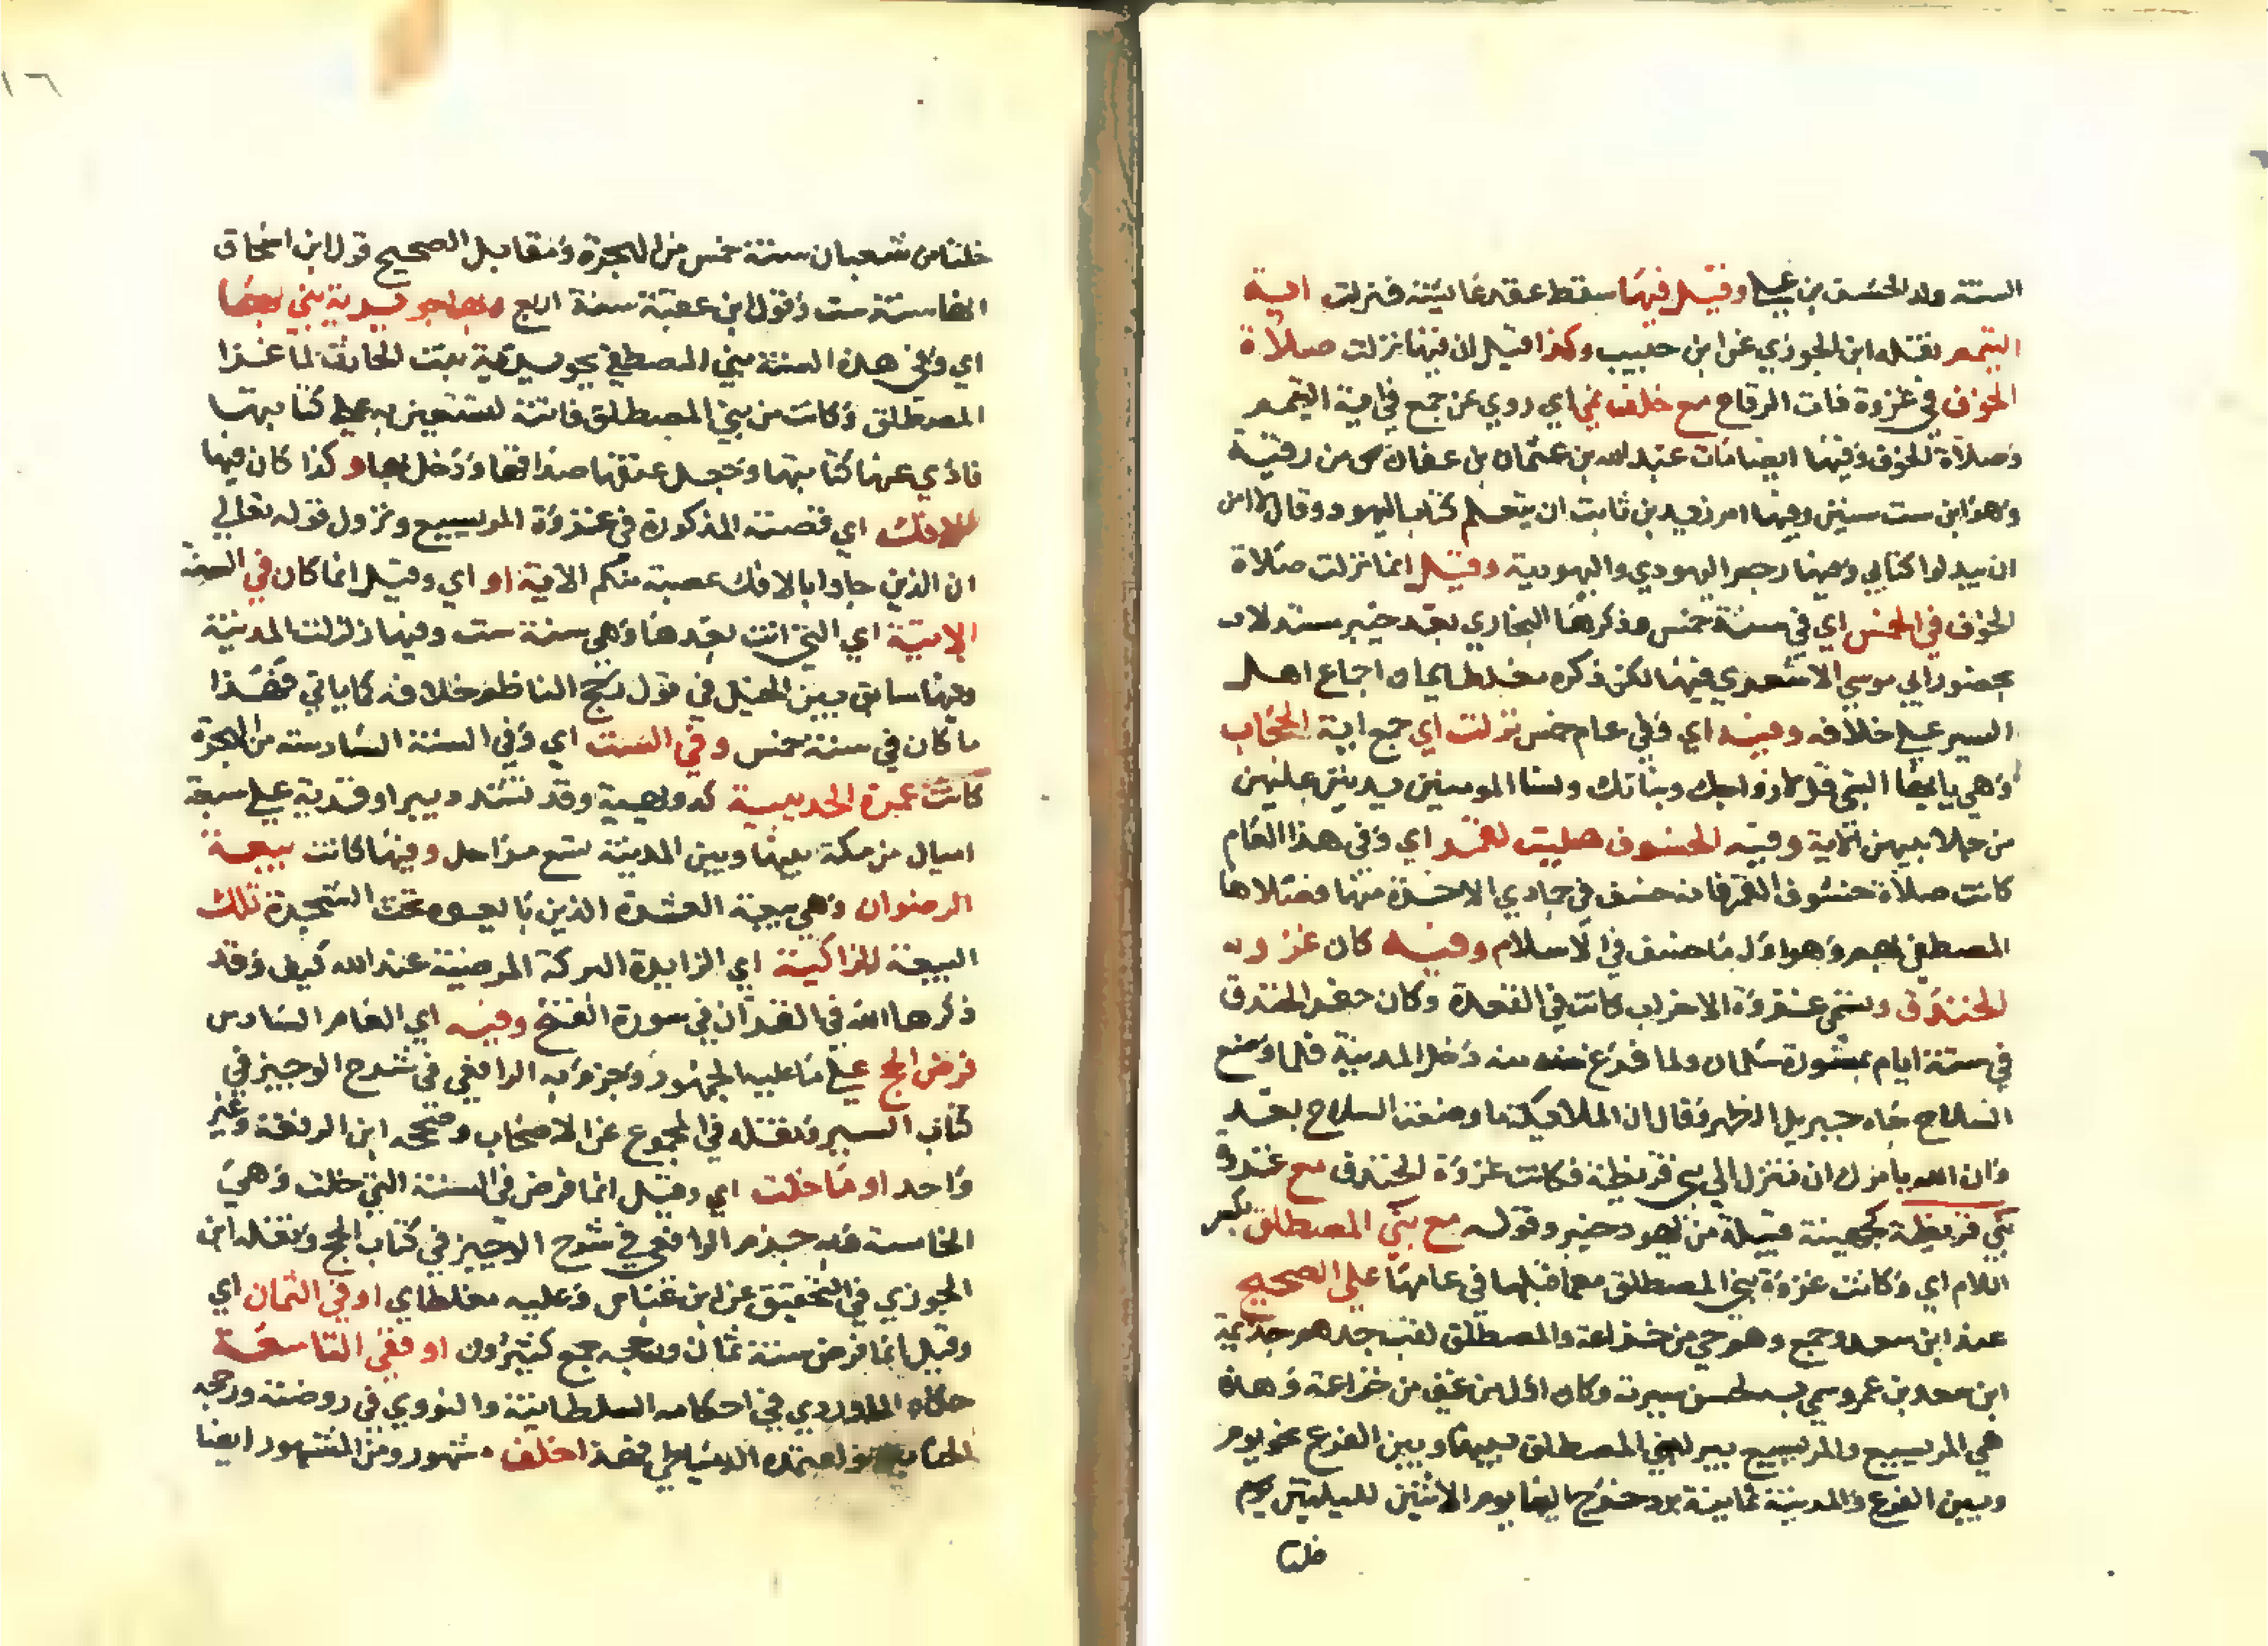 السنة ولد الحسين بن علي وقيل فيها سقط عقد عايشة فنزلت اية
التيمم نقله ابن الجوزي عن ابن حبيب وكذا قيل ان فيها نزلت صلاة
الخوف في غزوة ذات الرقاع مع خلف نمي اي روي عن جمع في اية التيمم
وصلاة الخوف وفيها ايضا مات عبد الله بن عثمان بن عفان من رقية
وهو ابن ست سنين وفيها امر زيد بن ثابت ان يتعلم كتاب اليهود وقال لا امن
ان يبدلوا كتابي وفيها رجم اليهودي واليهودية وقيل انما نزلت صلاة
الخوف في الخمس اي في سنة خمس وذكرها البخاري بعد خيبر مستدلا
بحضور ابي موسي الاشعري فيها لكن ذكره مغلطاي اجماع اهل
السير علي خلافه وفيه اي وفي عام خمس نزلت اي جمع اية الحجاب
وهي يا ايها النبي قل لازواجك وبناتك ونسا المومنين يدنين عليهن
من جلابيبهن الاية وفيه الخسوف صليت لقمر اي وفي هذا العام
كانت صلاة خسوف القمر فانه خسف في جمادي الاخرة منها فصلاها
المصطفي بهم وهو اول ما خسف في الاسلام وفيه كان غزوة
الخندق وتسمي غزوة الاحزاب كانت في القعدة وكان حفر الخندق
في ستة ايام بمشورة سلمان ولما فرغ منه دخل المدينة فلما وضع
السلاح جاه جبريل الظهر فقال ان الملايكة ما وضعت السلاح بعد
وان الله يامرك ان تنزل الي بني قريظة فكانت غزوة الخندق مع غزوة
بني قريظة كجهينة قبيلة من يهود خيبر وقوله مع بني المصطلق بكسر
اللام اي وكانت غزوة بني المصطلق مع ما قبلها في عامها علي الصحيح
عند ابن سعد وجمع وهو حي من خزاعة والمصطلق لقب جدهم جذيمة
ابن سعد بن عمرو سمي به لحسن صوته وكان اول من غني من خزاعة وهذه
هي المريسيع والمريسيع بير لبني المصطلق بينها وبين الفرع نحو يوم
وبين الفرع والمدينة ثمانية برد خرج اليها يوم الاثنين لليلتين
خلتا
١٦
خلتا من شعبان سنة خمس من الهجرة ومقابل الصحيح قول ابن اسحاق
انها سنة ست وقول ابن عقبة سنة اربع جويرية بني بها
اي وفي هذه السنة بني المصطفي بجويرية بنت الحارث لما غزا
المصطلق وكانت من بني المصطلق فاتته تستعين به علي كتابتها
فادي عنها كتابتها وجعل عتقها صداقها ودخل بها وكذا كان فيها
الافك اي قصته المذكورة في غزوة المريسيع ونزول قوله تعالي
ان الذين جاوا بالافك عصبة منكم الاية او اي وقيل انما كان في السنة
الاتية اي التي اتت بعدها وهي سنة ست وفيها زلزلت المدينة
وفيها سابق بين الخيل في قول رجح الناظم خلافه كما ياتي فهذا
ما كان في سنة خمس وفي الست اي وفي السنة السادسة من الهجرة
كانت عمرة الحديبية كدويهية وقد تشدد بير او قرية علي سبعة
اميال من مكة بينها وبين المدينة تسع مراحل وفيها كانت بيعة
الرضوان وهي بيعة العشرة الذين بايعوه تحت الشجرة تلك
البيعة الزاكية اي الزايدة البركة المرضية عند الله كيف وقد
ذكرها الله في القران في سورة الفتح وفيه اي العام السادس
فرض الحج علي ما عليه الجمهور وجزم به الرافعي في شرح الوجيز في
كتاب السير ونقله في المجموع عن الاصحاب وصححه ابن الرفعة وغير
واحد او ما خلت اي وقيل انما فرض في السنة التي خلت وهي
الخامسة وبه جزم الرافعي في شرح الوجيز في كتاب الحج ونقله ابن
الجوزي في التحقيق عن ابن عباس وعليه مغلطاي او في الثمان اي
وقيل انما فرض سنة ثمان وصححه جمع كثيرون او ففي التاسعة
حكاه الماوردي في احكامه السلطانية والنووي في روضته ورجحه
الدمياطي فخذ اختلف مشهور ومن المشهور ايضا